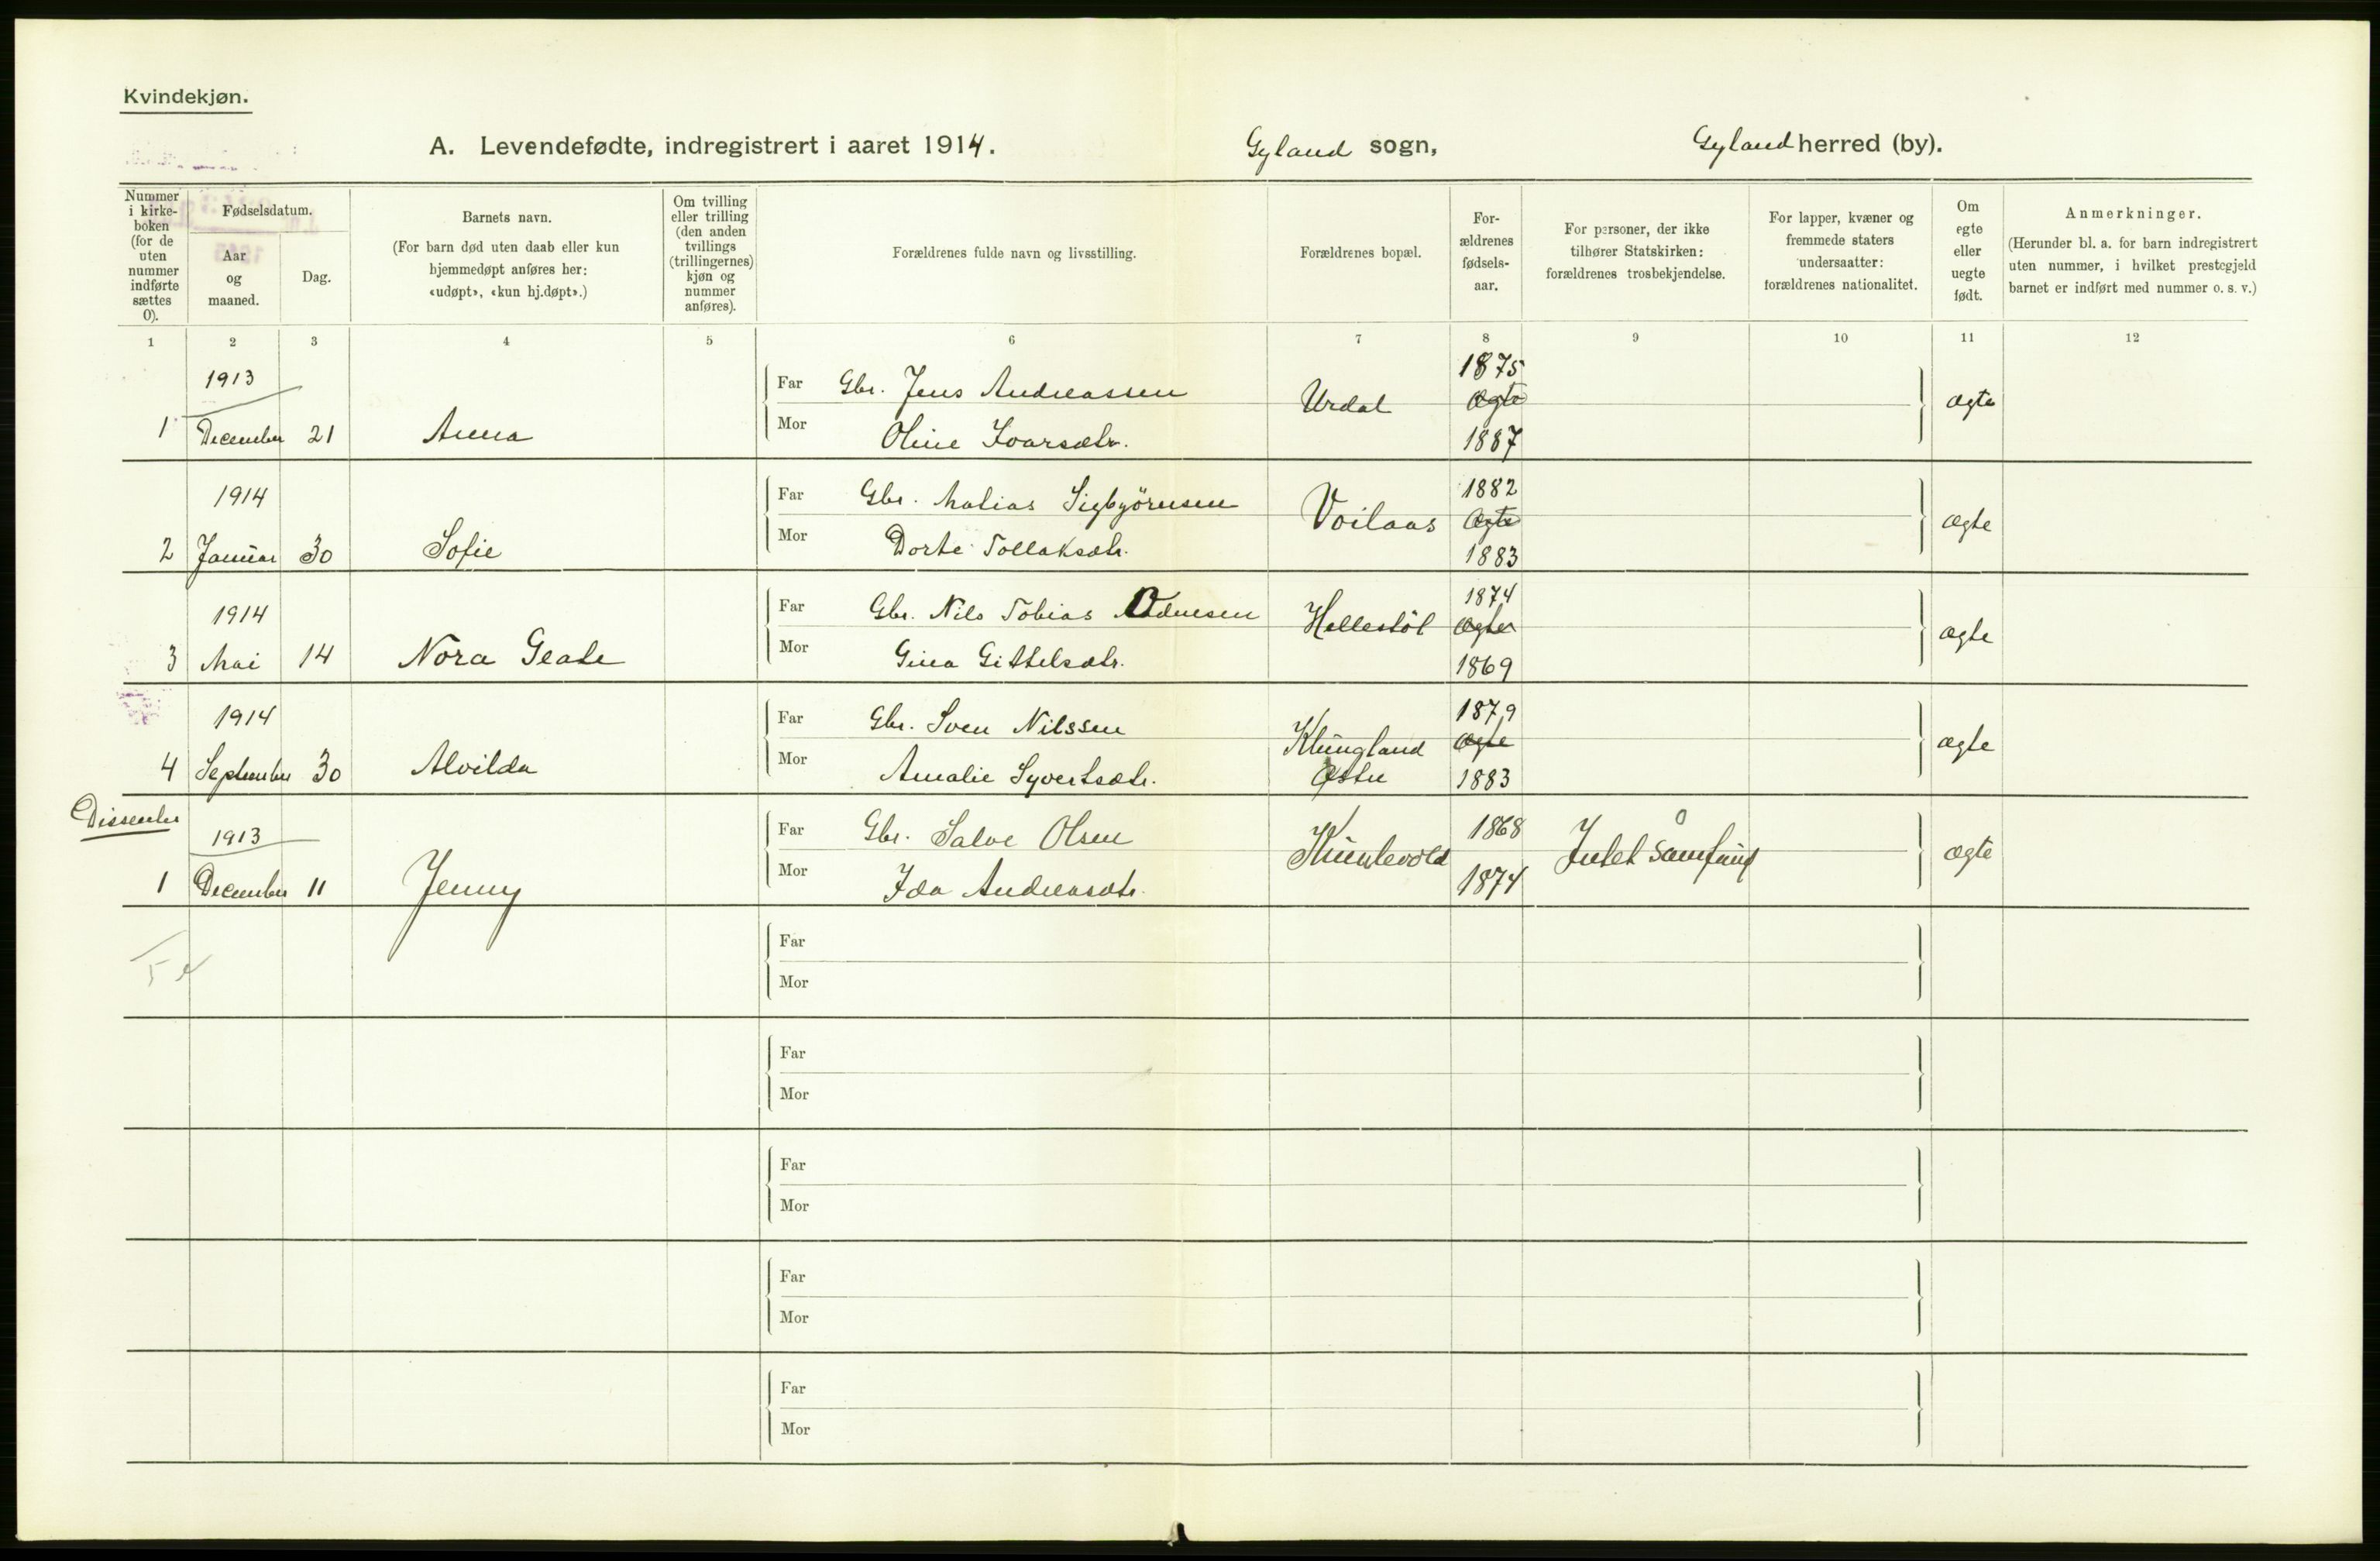 Kvindekjøn.
A. Levendefødte, indregistrert i aaret 1914. Gyland sogn, Gyland herred (by).
Nummer i kirke-boken (for de uten nummer indførte sættes 0).
Fødselsdatum.
Aar og maaned.
Dag.
Barnets navn.
(For barn død uten daab eller kun hjemmedøpt anføres her: «udøpt», «kun hj.døpt».)
Om tvilling eller trilling (den anden tvillings (trillingernes) kjøn og nummer anføres).
Forældrenes fulde navn og livsstilling.
Forældrenes bopæl.
For-ældrenes fødsels-aar.
For personer, der ikke tilhører Statskirken: forældrenes trosbekjendelse.
For lapper, kvæner og fremmede staters undersaatter: forældrenes nationalitet.
Om egte eller uegte født.
Anmerkninger.
(Herunder bl. a. for barn indregistrert uten nummer, i hvilket prestegjeld barnet er indført med nummer o. s. v.)
1 2 3 4 5 6 7 8 9 10 11 12
1913 Far Gbr. Jens Andreassen 1875
Urdal ægte ægte
1 December 21 Anna Mor Oline Ivarsdtr. 1887
1914 Far Gbr. Matias Sigbjörnsen 1882
Voilaas ægte ægte
2 Januar 30 Sofie Mor Dorte Tollaksdtr. 1883
1914 Far Gbr. Nils Tobias Odnesen 1874
Hellestöl ægte ægte
3 Mai 14 Nora Geate Mor Gina Gittelsdtr. 1869
1914 Far Gbr. Sven Nilssen 1879
Klungland ægte ægte
4 September 30 Alvilda Mor Amalie Syvertsdtr. Östre 1883
Dissenter
1913 Far Gbr. Salve Olsen 1868
Intet samfund ægte
1 December 11 Jenny Mor Ida Andreasdtr. 1874
5
Far
Mor
Far
Mor
Far
Mor
Far
Mor
Far
Mor